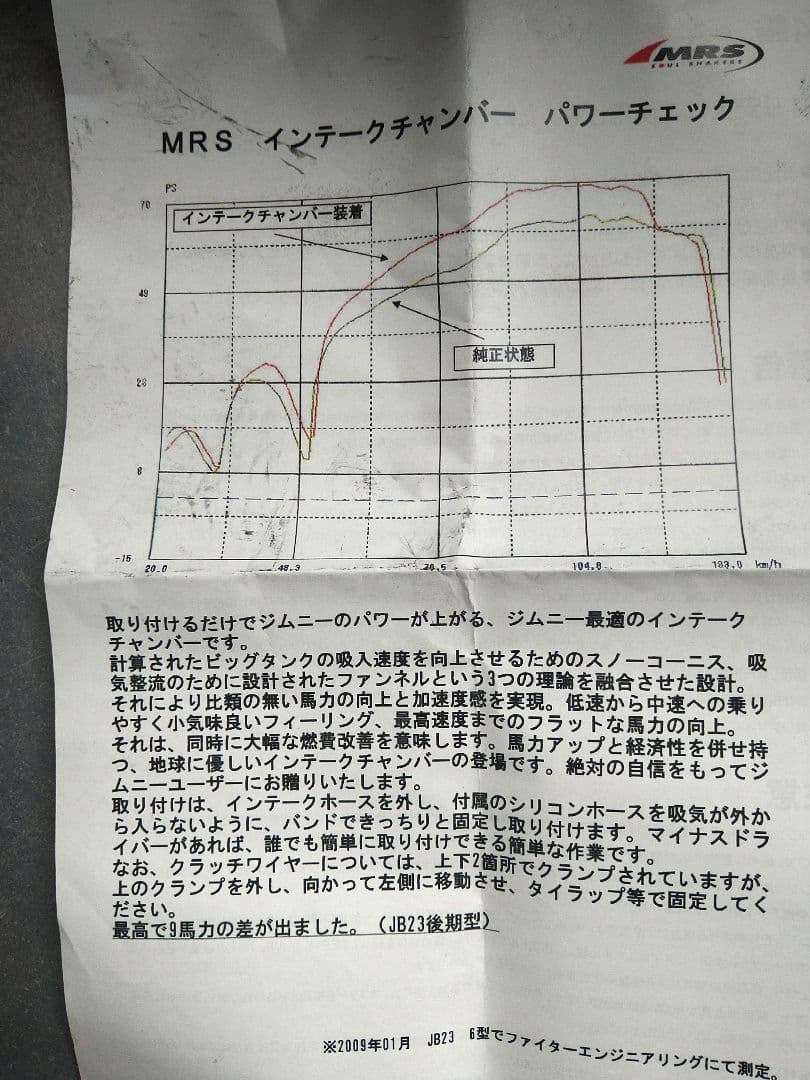 MRS
SOUL SHAKERS
MRS インテークチャンバー パワーチェック
PS
70
インテークチャンバー装着
49
純正状態
28
6
-15
20.0
48.3
76.5
104.8
133.0 km/h
取り付けるだけでジムニーのパワーが上がる、ジムニー最適のインテーク
チャンバーです。
計算されたビッグタンクの吸入速度を向上させるためのスノーコーニス、吸
気整流のために設計されたファンネルという3つの理論を融合させた設計。
それにより比類の無い馬力の向上と加速度感を実現。低速から中速への乗り
やすく小気味良いフィーリング、最高速度までのフラットな馬力の向上。
それは、同時に大幅な燃費改善を意味します。馬力アップと経済性を併せ持
つ、地球に優しいインテークチャンバーの登場です。絶対の自信をもってジ
ムニーユーザーにお贈りいたします。
取り付けは、インテークホースを外し、付属のシリコンホースを吸気が外か
ら入らないように、バンドできっちりと固定し取り付けます。マイナスドラ
イバーがあれば、誰でも簡単に取り付けできる簡単な作業です。
なお、クラッチワイヤーについては、上下2箇所でクランプされていますが、
上のクランプを外し、向かって左側に移動させ、タイラップ等で固定してく
ださい。
最高で9馬力の差が出ました。（JB23後期型）
※2009年01月 JB23 6型でファイターエンジニアリングにて測定。